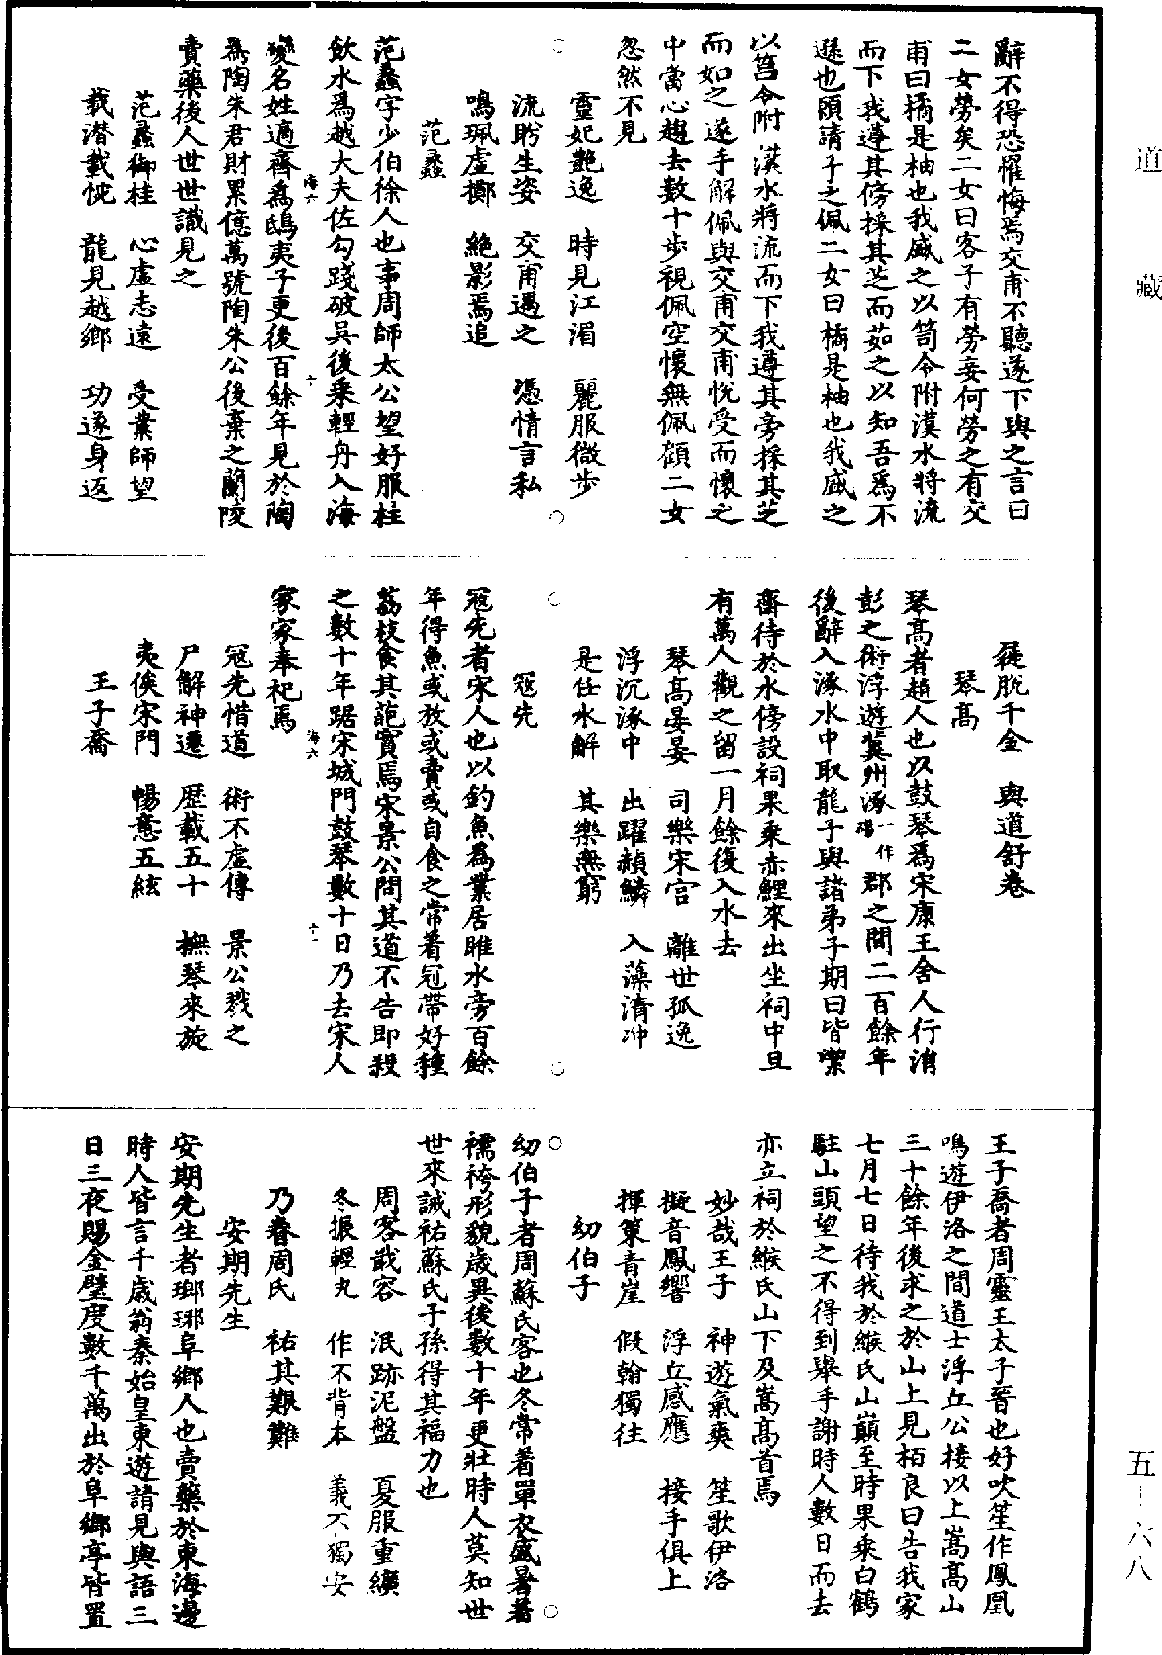 道藏
五－六八
辭不得恐懼悔焉交甫不聽遂下與之言曰
二女勞矣二女曰客子有勞妾何勞之有交
甫曰橘是柚也我盛之以笥令附漢水將流
而下我遵其傍採其芝而茹之以知吾爲不
遜也願請子之佩二女曰橘是柚也我盛之
以筥令附漢水將流而下我遵其旁採其芝
而如之遂手解佩與交甫交甫悅受而懷之
中當心趨去數十步視佩空懷無佩顧二女
忽然不見
靈妃艷逸　時見江湄　麗服微步
流盻生姿　交甫遇之　憑情言私
鳴珮虛擲　絕影焉追
范蠡
范蠡字少伯徐人也事周師太公望好服桂
飲水爲越大夫佐勾踐破吳後乘輕舟入海
變名姓適齊爲鴟夷子更後百餘年見於陶
爲陶朱君財累億萬號陶朱公後棄之蘭陵
賣藥後人世世識見之
范蠡御桂　心虛志遠　受業師望
載潛載忱　龍見越鄉　功遂身返
屣脫千金　與道舒卷
琴高
琴高者趙人也以鼓琴爲宋康王舍人行涓
彭之術浮遊冀州涿一作碭郡之間二百餘年
後辭入涿水中取龍子與諸弟子期曰皆潔
齋待於水傍設祠果乘赤鯉來出坐祠中旦
有萬人觀之留一月餘復入水去
琴高晏晏　司樂宋宮　離世孤逸
浮沉涿中　出躍赬鱗　入藻清冲
是任水解　其樂無窮
寇先
寇先者宋人也以釣魚爲業居睢水旁百餘
年得魚或放或賣或自食之常着冠帶好種
荔枝食其葩實焉宋景公問其道不告即殺
之數十年踞宋城門鼓琴數十日乃去宋人
家家奉祀焉
寇先惜道　術不虛傳　景公戮之
尸解神遷　歷載五十　撫琴來旋
夷俟宋門　暢意五絃
王子喬
王子喬者周靈王太子晉也好吹笙作鳳凰
鳴遊伊洛之間道士浮丘公接以上嵩高山
三十餘年後求之於山上見栢良曰告我家
七月七日待我於緱氏山巔至時果乘白鶴
駐山頭望之不得到舉手謝時人數日而去
亦立祠於緱氏山下及嵩高首焉
妙哉王子　神遊氣爽　笙歌伊洛
擬音鳳響　浮丘感應　接手俱上
揮策青崖　假翰獨往
幼伯子
幼伯子者周蘇氏客也冬常着單衣盛暑著
襦袴形貌歲異後數十年更壯時人莫知世
世來誡祐蘇氏子孫得其福力也
周客戢容　泯跡泥盤　夏服重纊
冬振輕丸　作不背本　義不獨安
乃眷周氏　祐其艱難
安期先生
安期先生者瑯琊阜鄉人也賣藥於東海邊
時人皆言千歲翁秦始皇東遊請見與語三
日三夜賜金璧度數千萬出於阜鄉亭皆置